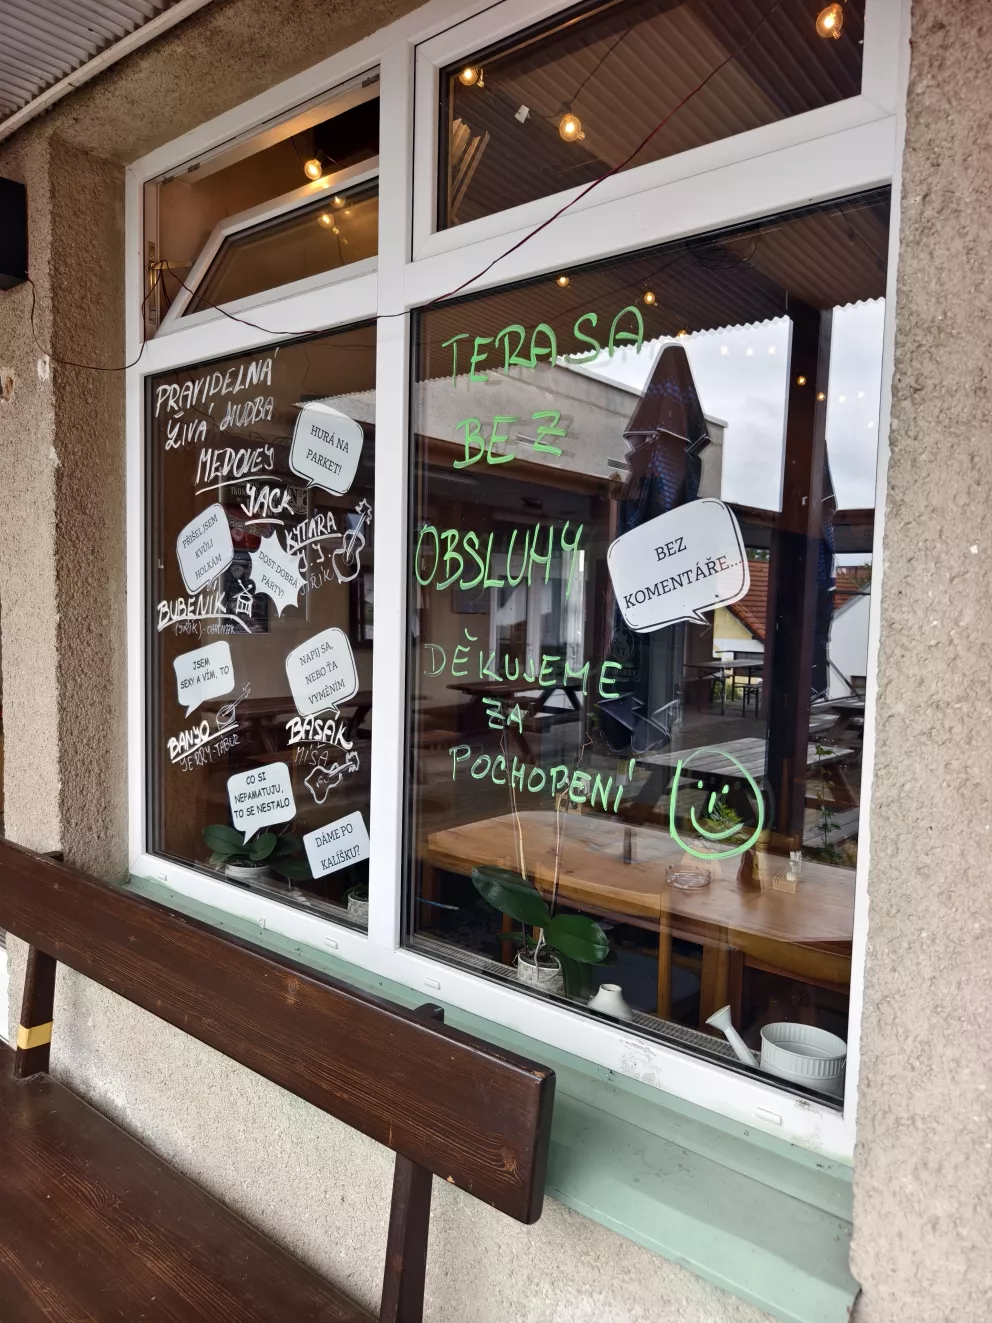 PRAVIDELNÁ
ŽIVÁ HUDBA
MEDOVEJ
JACK
HURÁ NA
PARKET!
KYTARA
J.J.
JIŘÍK
PŘIŠEL JSEM
KVŮLI
HOLKÁM
DOST DOBRÁ
PÁRTY!
BUBENÍK
JSEM
SEXY A VÍM, TO
NAPIJ SA,
NEBO ŤA
VYMĚNÍM
BANJO
JERRY-TÁBOR
BASÁK
MÍŠA
CO SI
NEPAMATUJU,
TO SE NESTALO
DÁME PO
KALÍŠKU?
TERASA
BEZ
OBSLUHY
BEZ
KOMENTÁŘE...
DĚKUJEME
ZA
POCHOPENÍ